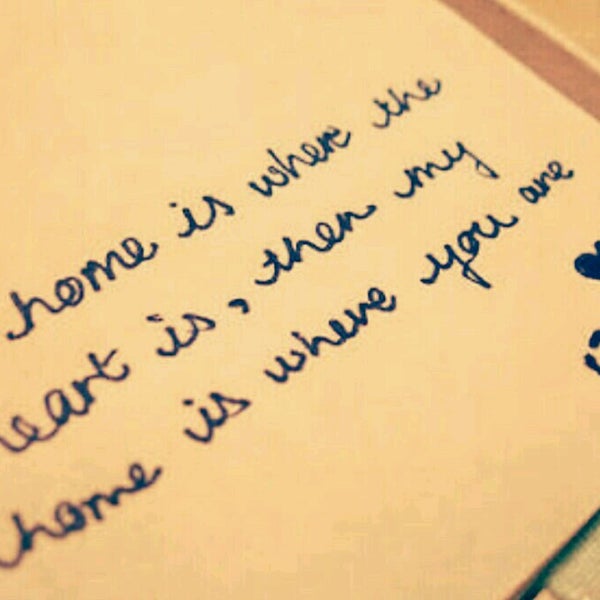 home is where the
heart is, then my
home is where you are